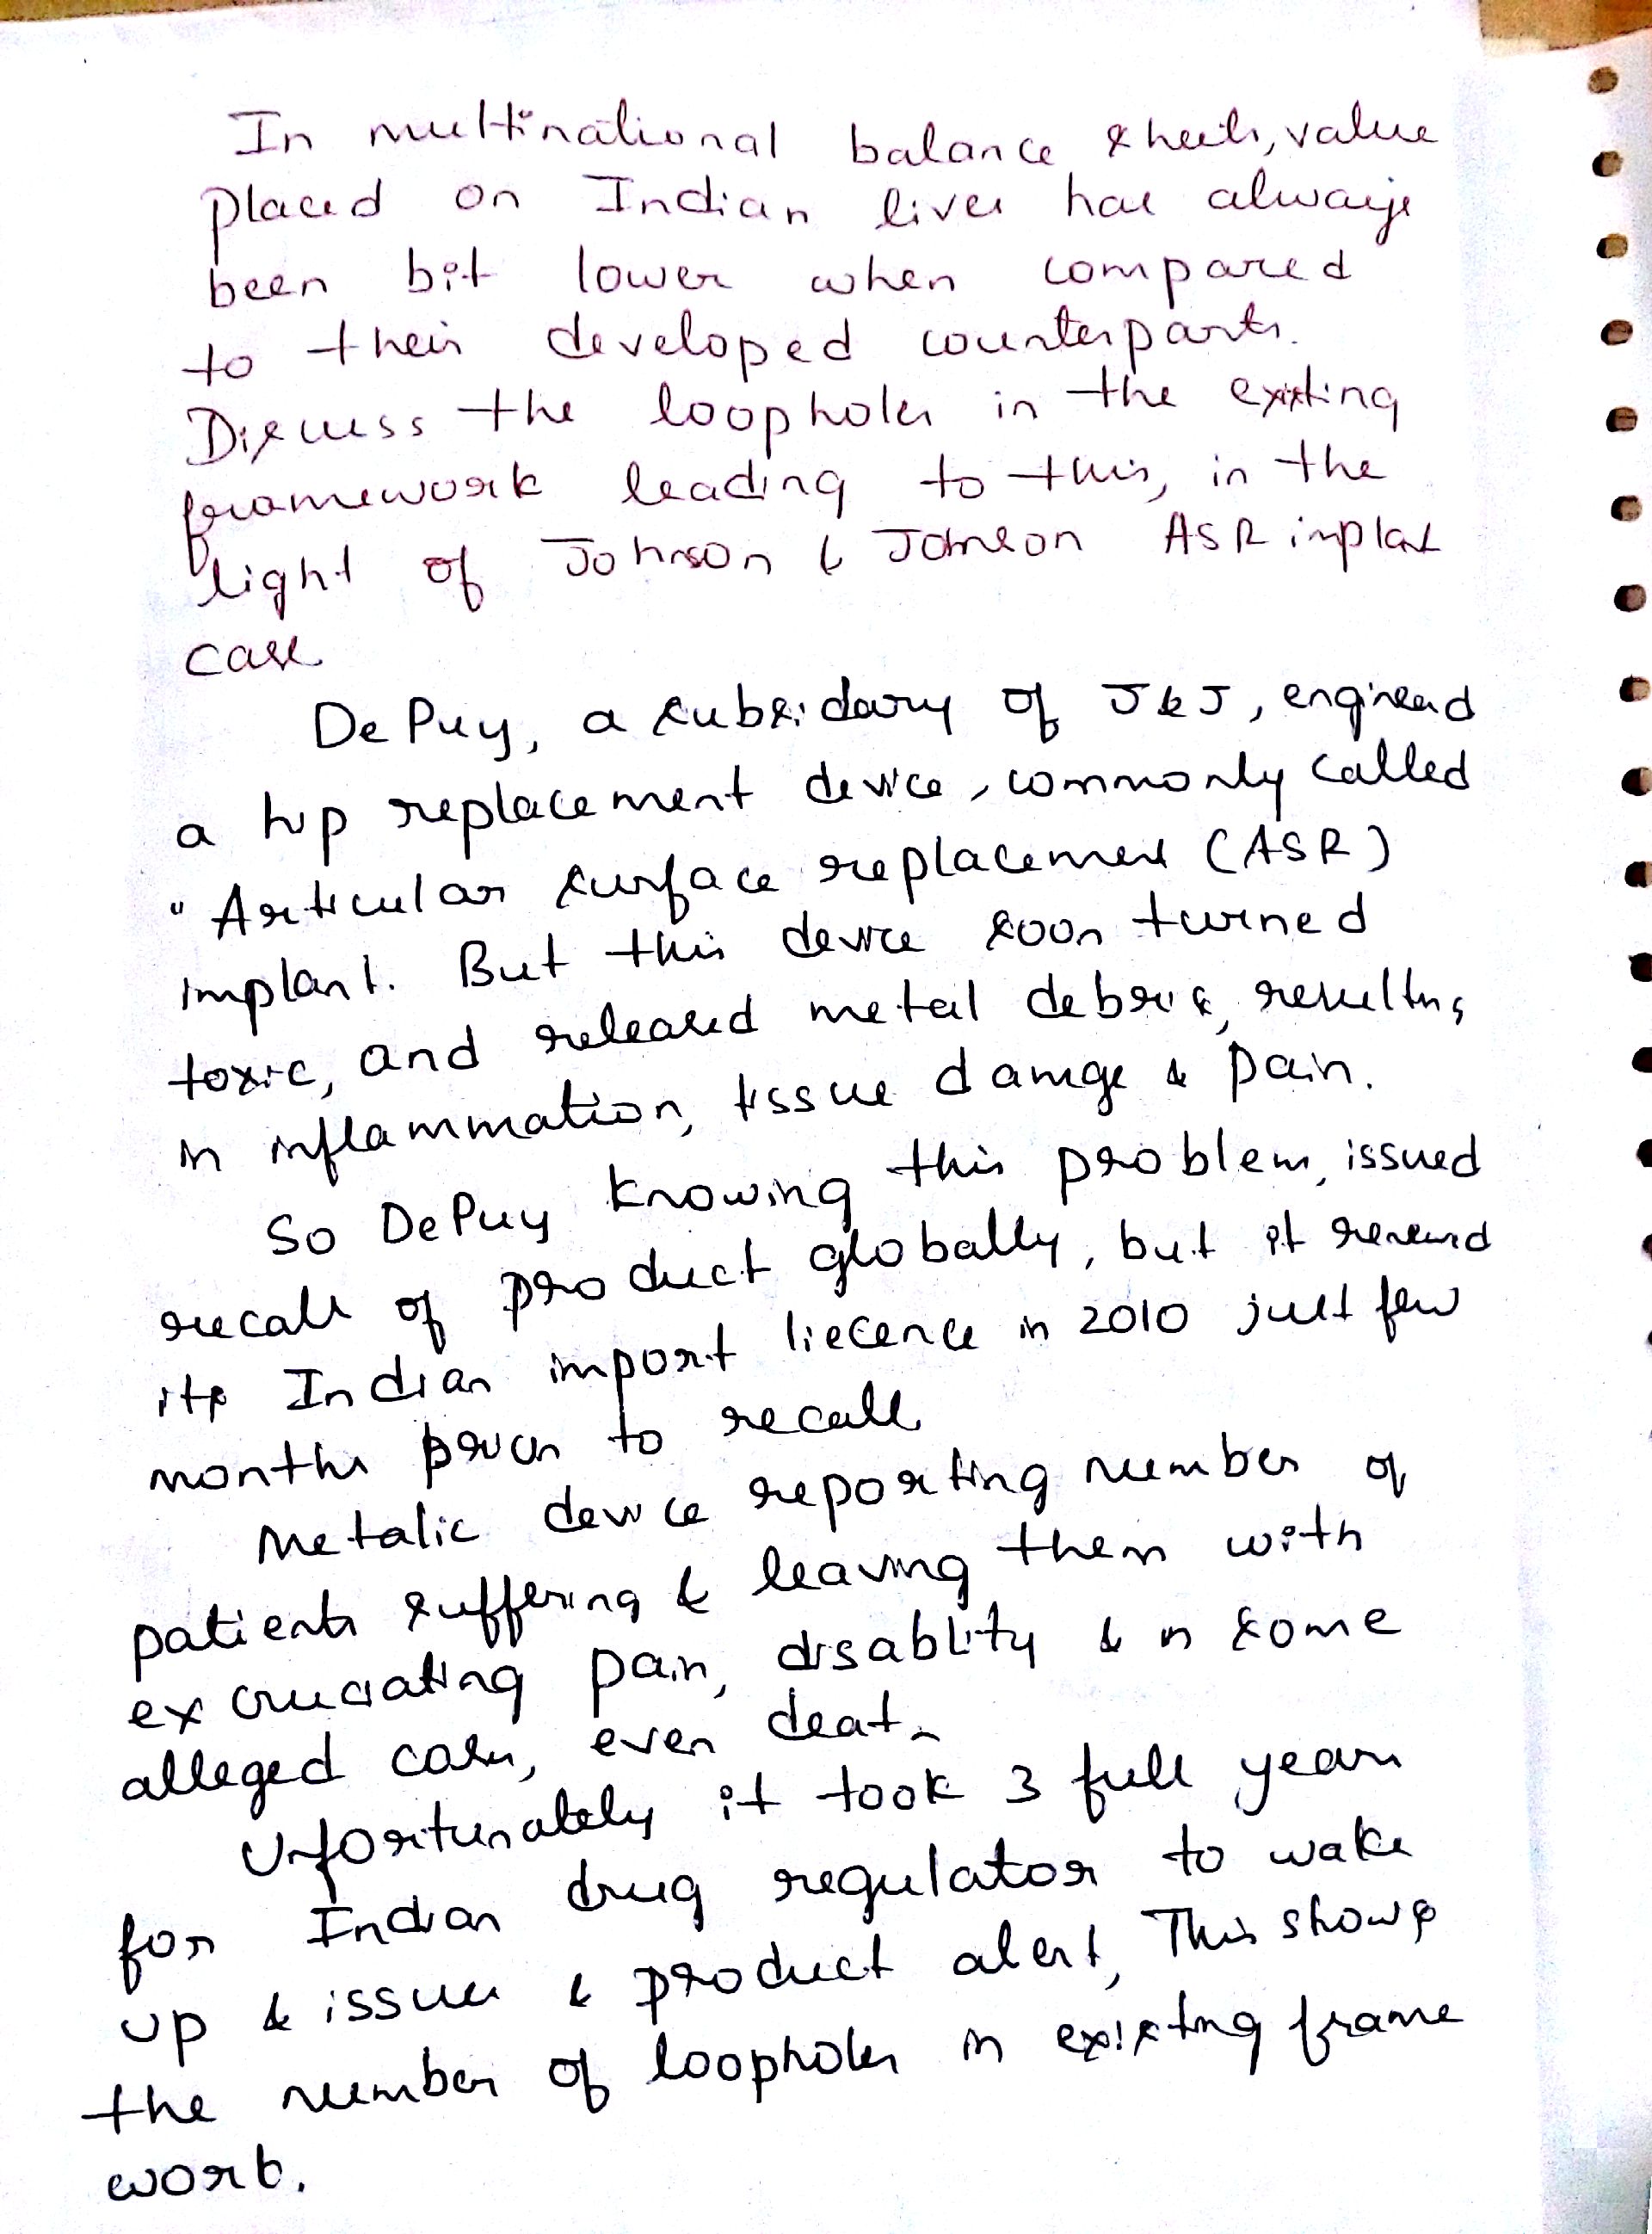 In multinational balance sheets, value
placed on Indian lives has always
been bit lower when compared
to their developed counterparts.
Discuss the loopholes in the existing
framework leading to this, in the
light of Johnson & Johnson ASR implat
case
DePuy, a subsidary of J&J, enginead
a hip replacement device, commonly called
"Articular surface replacement (ASR)
implant. But this device soon turned
toxic, and released metal debris, resulting
in inflammation, tissue damge & pain.
So DePuy knowing this problem, issued
recall of product globally, but it renewd
its Indian import liecence in 2010 just few
months prior to recall
Metalic device reporting number of
patients suffering & leaving them with
excruciating pain, disablity & in some
alleged cases, even death
Unfortunately it took 3 full years
for Indian drug regulator to wake
up & issues & product alert, This shows
the number of loopholes in existing frame
work.